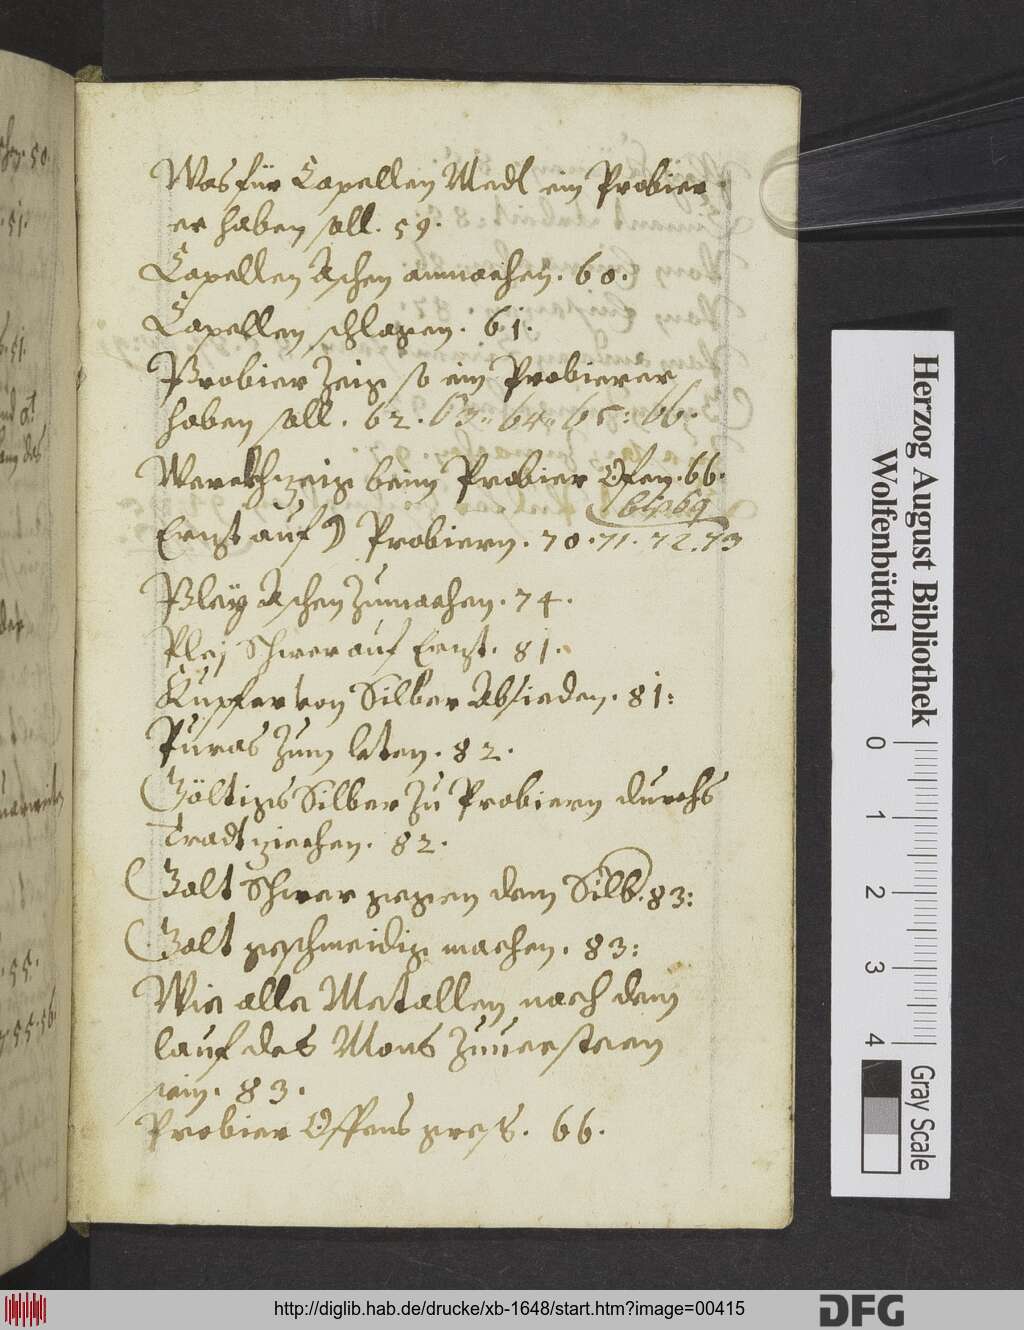 Was für Capellen Medl ein Probier
er haben soll. 59.
Capellen Aschen anmachen. 60.
Capellen schlagen. 61.
Probier Zeig so ein Probierer
haben soll. 62. 63. 64. 65. 66.
Werckhzeig beim Probier Ofen. 66.
bis 69
Ernst auf ☽ Probiern. 70. 71. 72. 73
Bley Aschen Zumachen. 74.
Plej Schwer auf Ernst. 81.
Kupfer von Silber Absieden. 81:
Puras Zum leten. 82.
Göltigs Silber Zu Probiern durchs
Tradt ziechen. 82.
Golt Schwer gegen dem Silb. 83:
Golt geschmeidig machen. 83:
Wie alle Metallen nach dem
lauf des Mons Zuuersteen
sein. 83.
Probier Offens gress. 66.
Herzog August Bibliothek
Wolfenbüttel
0 1 2 3 4
Gray Scale
http://diglib.hab.de/drucke/xb-1648/start.htm?image=00415
DFG